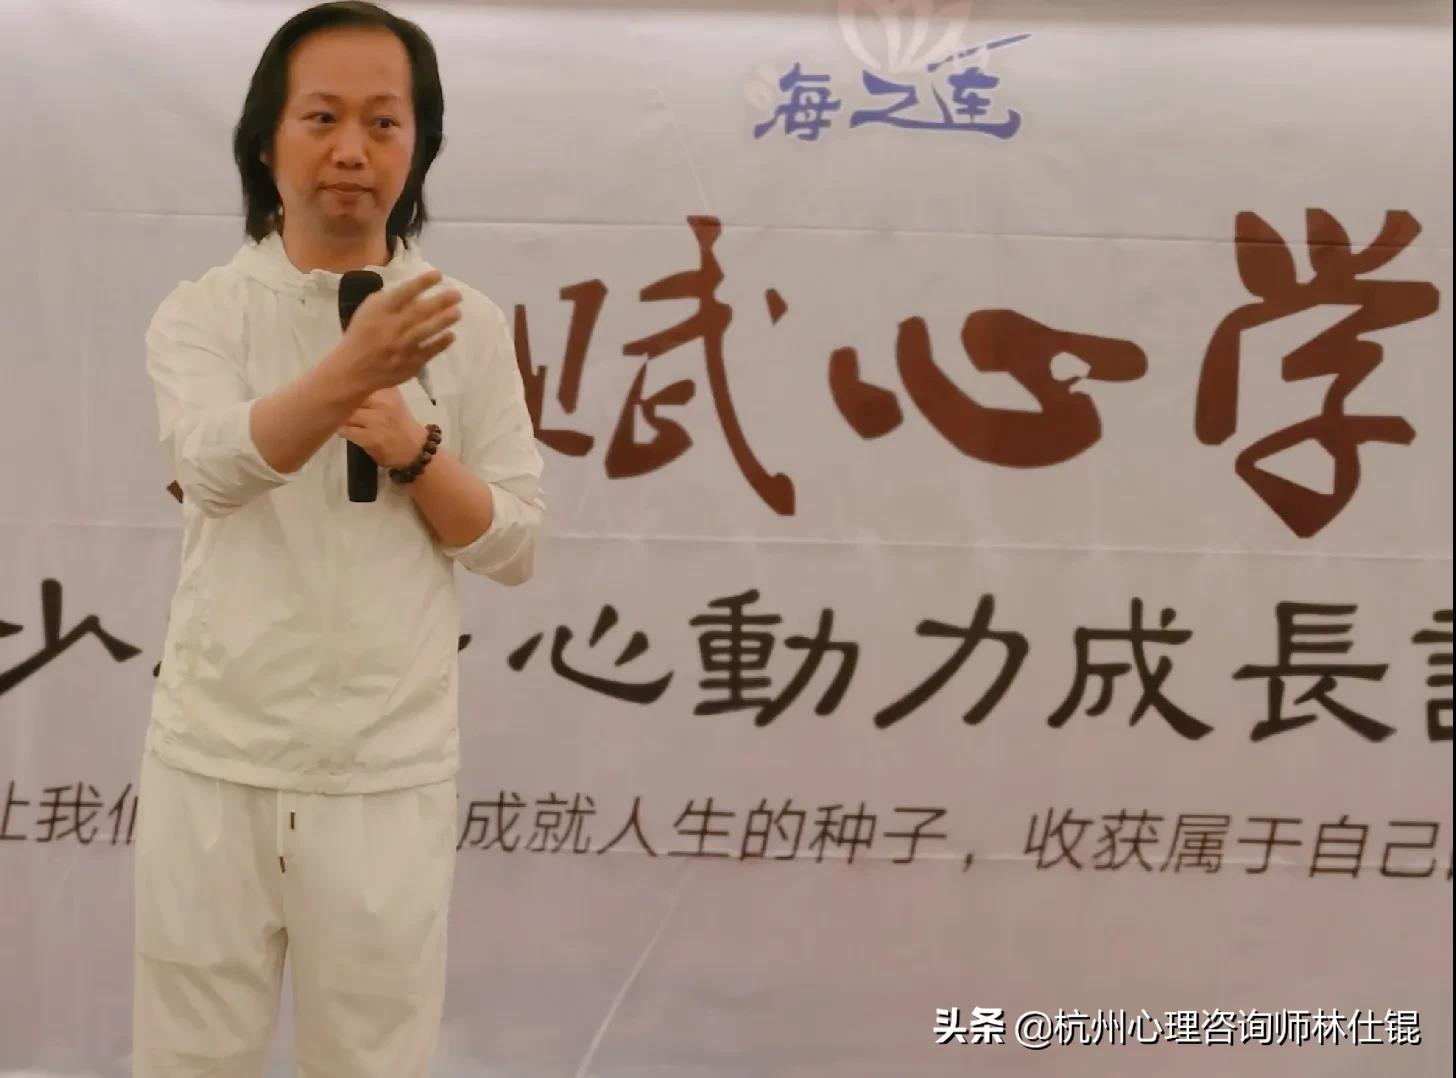 海之莲
赋心学
少 心動力成長
让我们 成就人生的种子，收获属于自己
头条 @杭州心理咨询师林仕锟